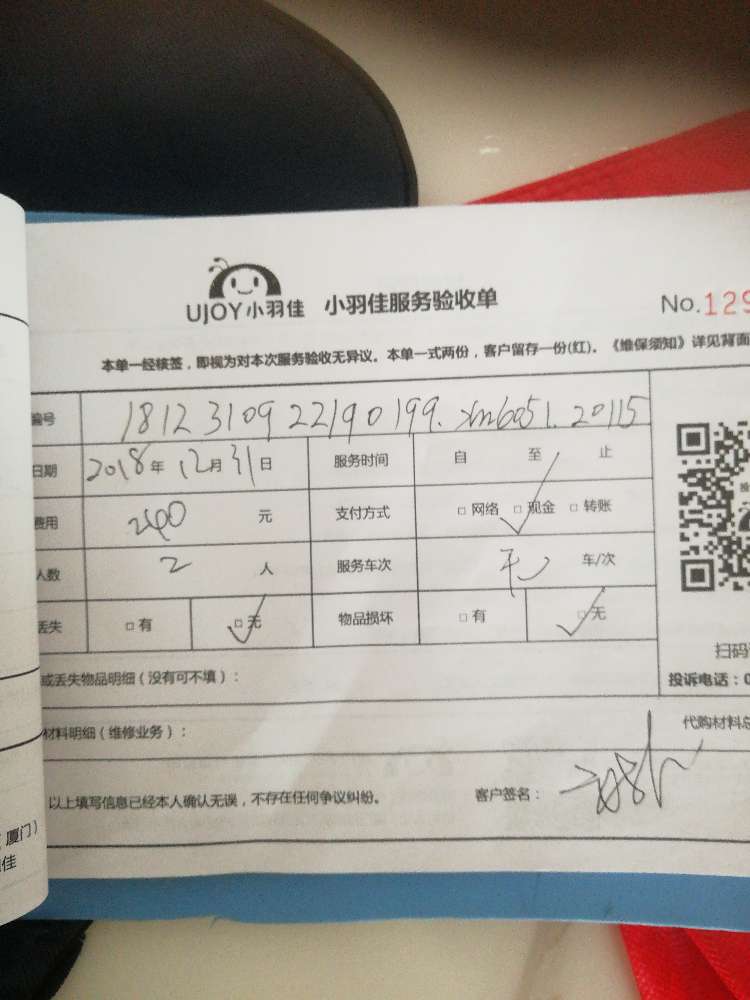 UJOY小羽佳 小羽佳服务验收单 No.129
本单一经核签，即视为对本次服务验收无异议。本单一式两份，客户留存一份(红)。《维保须知》详见背面
编号 1812310922190199.xm6051.20115
日期 2018年12月31日 服务时间 自 至 止
费用 元 支付方式 □网络 □现金 □转账
人数 2 人 服务车次 车/次
丢失 □有 □无 物品损坏 □有 □无
扫码
或丢失物品明细（没有可不填）： 投诉电话：0
材料明细（维修业务）： 代购材料总
以上填写信息已经本人确认无误，不存在任何争议纠纷。 客户签名：
厦门）
佳